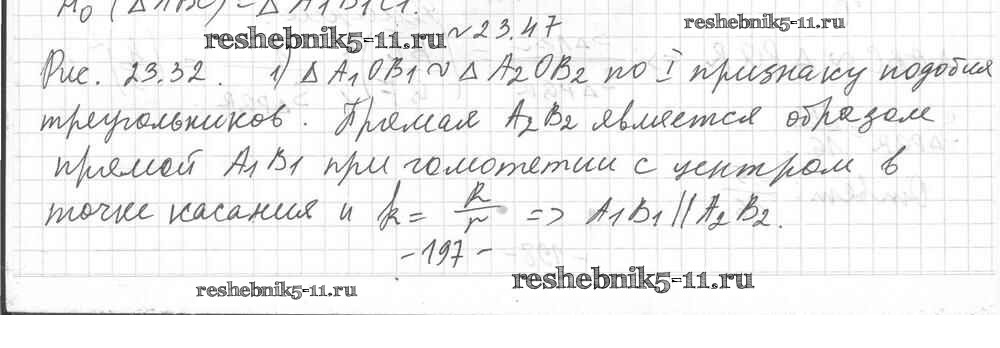 H₀ (△ABC) = △A1B1C1.
reshebnik5-11.ru
~23.47
reshebnik5-11.ru
Рис. 23.32. 1) △A1OB1 ~ △A2OB2 по I признаку подобия
треугольников. Прямая A2B2 является образом
прямой A1B1 при гомотетии с центром в
точке касания и k = R/r => A1B1 || A2B2.
-197-
reshebnik5-11.ru
reshebnik5-11.ru